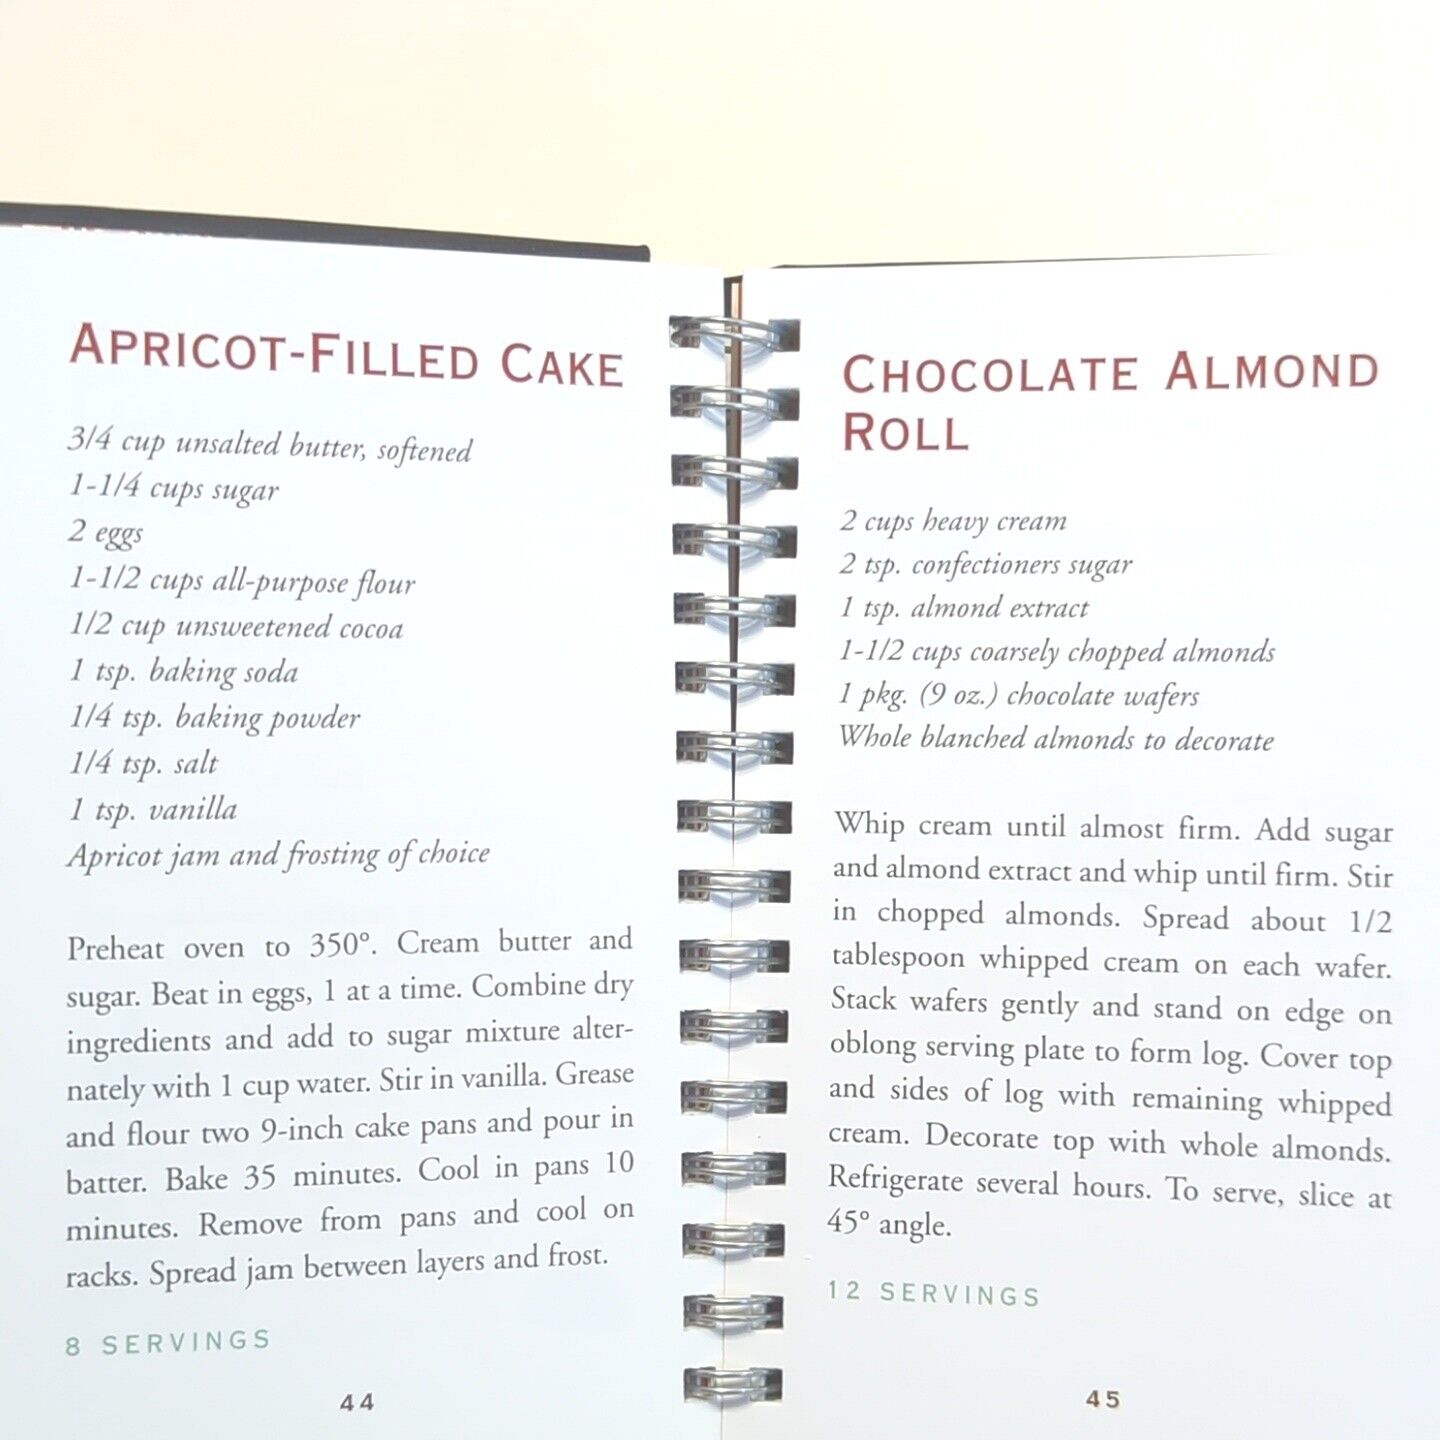 APRICOT-FILLED CAKE
3/4 cup unsalted butter, softened
1-1/4 cups sugar
2 eggs
1-1/2 cups all-purpose flour
1/2 cup unsweetened cocoa
1 tsp. baking soda
1/4 tsp. baking powder
1/4 tsp. salt
1 tsp. vanilla
Apricot jam and frosting of choice
Preheat oven to 350°. Cream butter and
sugar. Beat in eggs, 1 at a time. Combine dry
ingredients and add to sugar mixture alter-
nately with 1 cup water. Stir in vanilla. Grease
and flour two 9-inch cake pans and pour in
batter. Bake 35 minutes. Cool in pans 10
minutes. Remove from pans and cool on
racks. Spread jam between layers and frost.
8 SERVINGS
44
CHOCOLATE ALMOND
ROLL
2 cups heavy cream
2 tsp. confectioners sugar
1 tsp. almond extract
1-1/2 cups coarsely chopped almonds
1 pkg. (9 oz.) chocolate wafers
Whole blanched almonds to decorate
Whip cream until almost firm. Add sugar
and almond extract and whip until firm. Stir
in chopped almonds. Spread about 1/2
tablespoon whipped cream on each wafer.
Stack wafers gently and stand on edge on
oblong serving plate to form log. Cover top
and sides of log with remaining whipped
cream. Decorate top with whole almonds.
Refrigerate several hours. To serve, slice at
45° angle.
12 SERVINGS
45